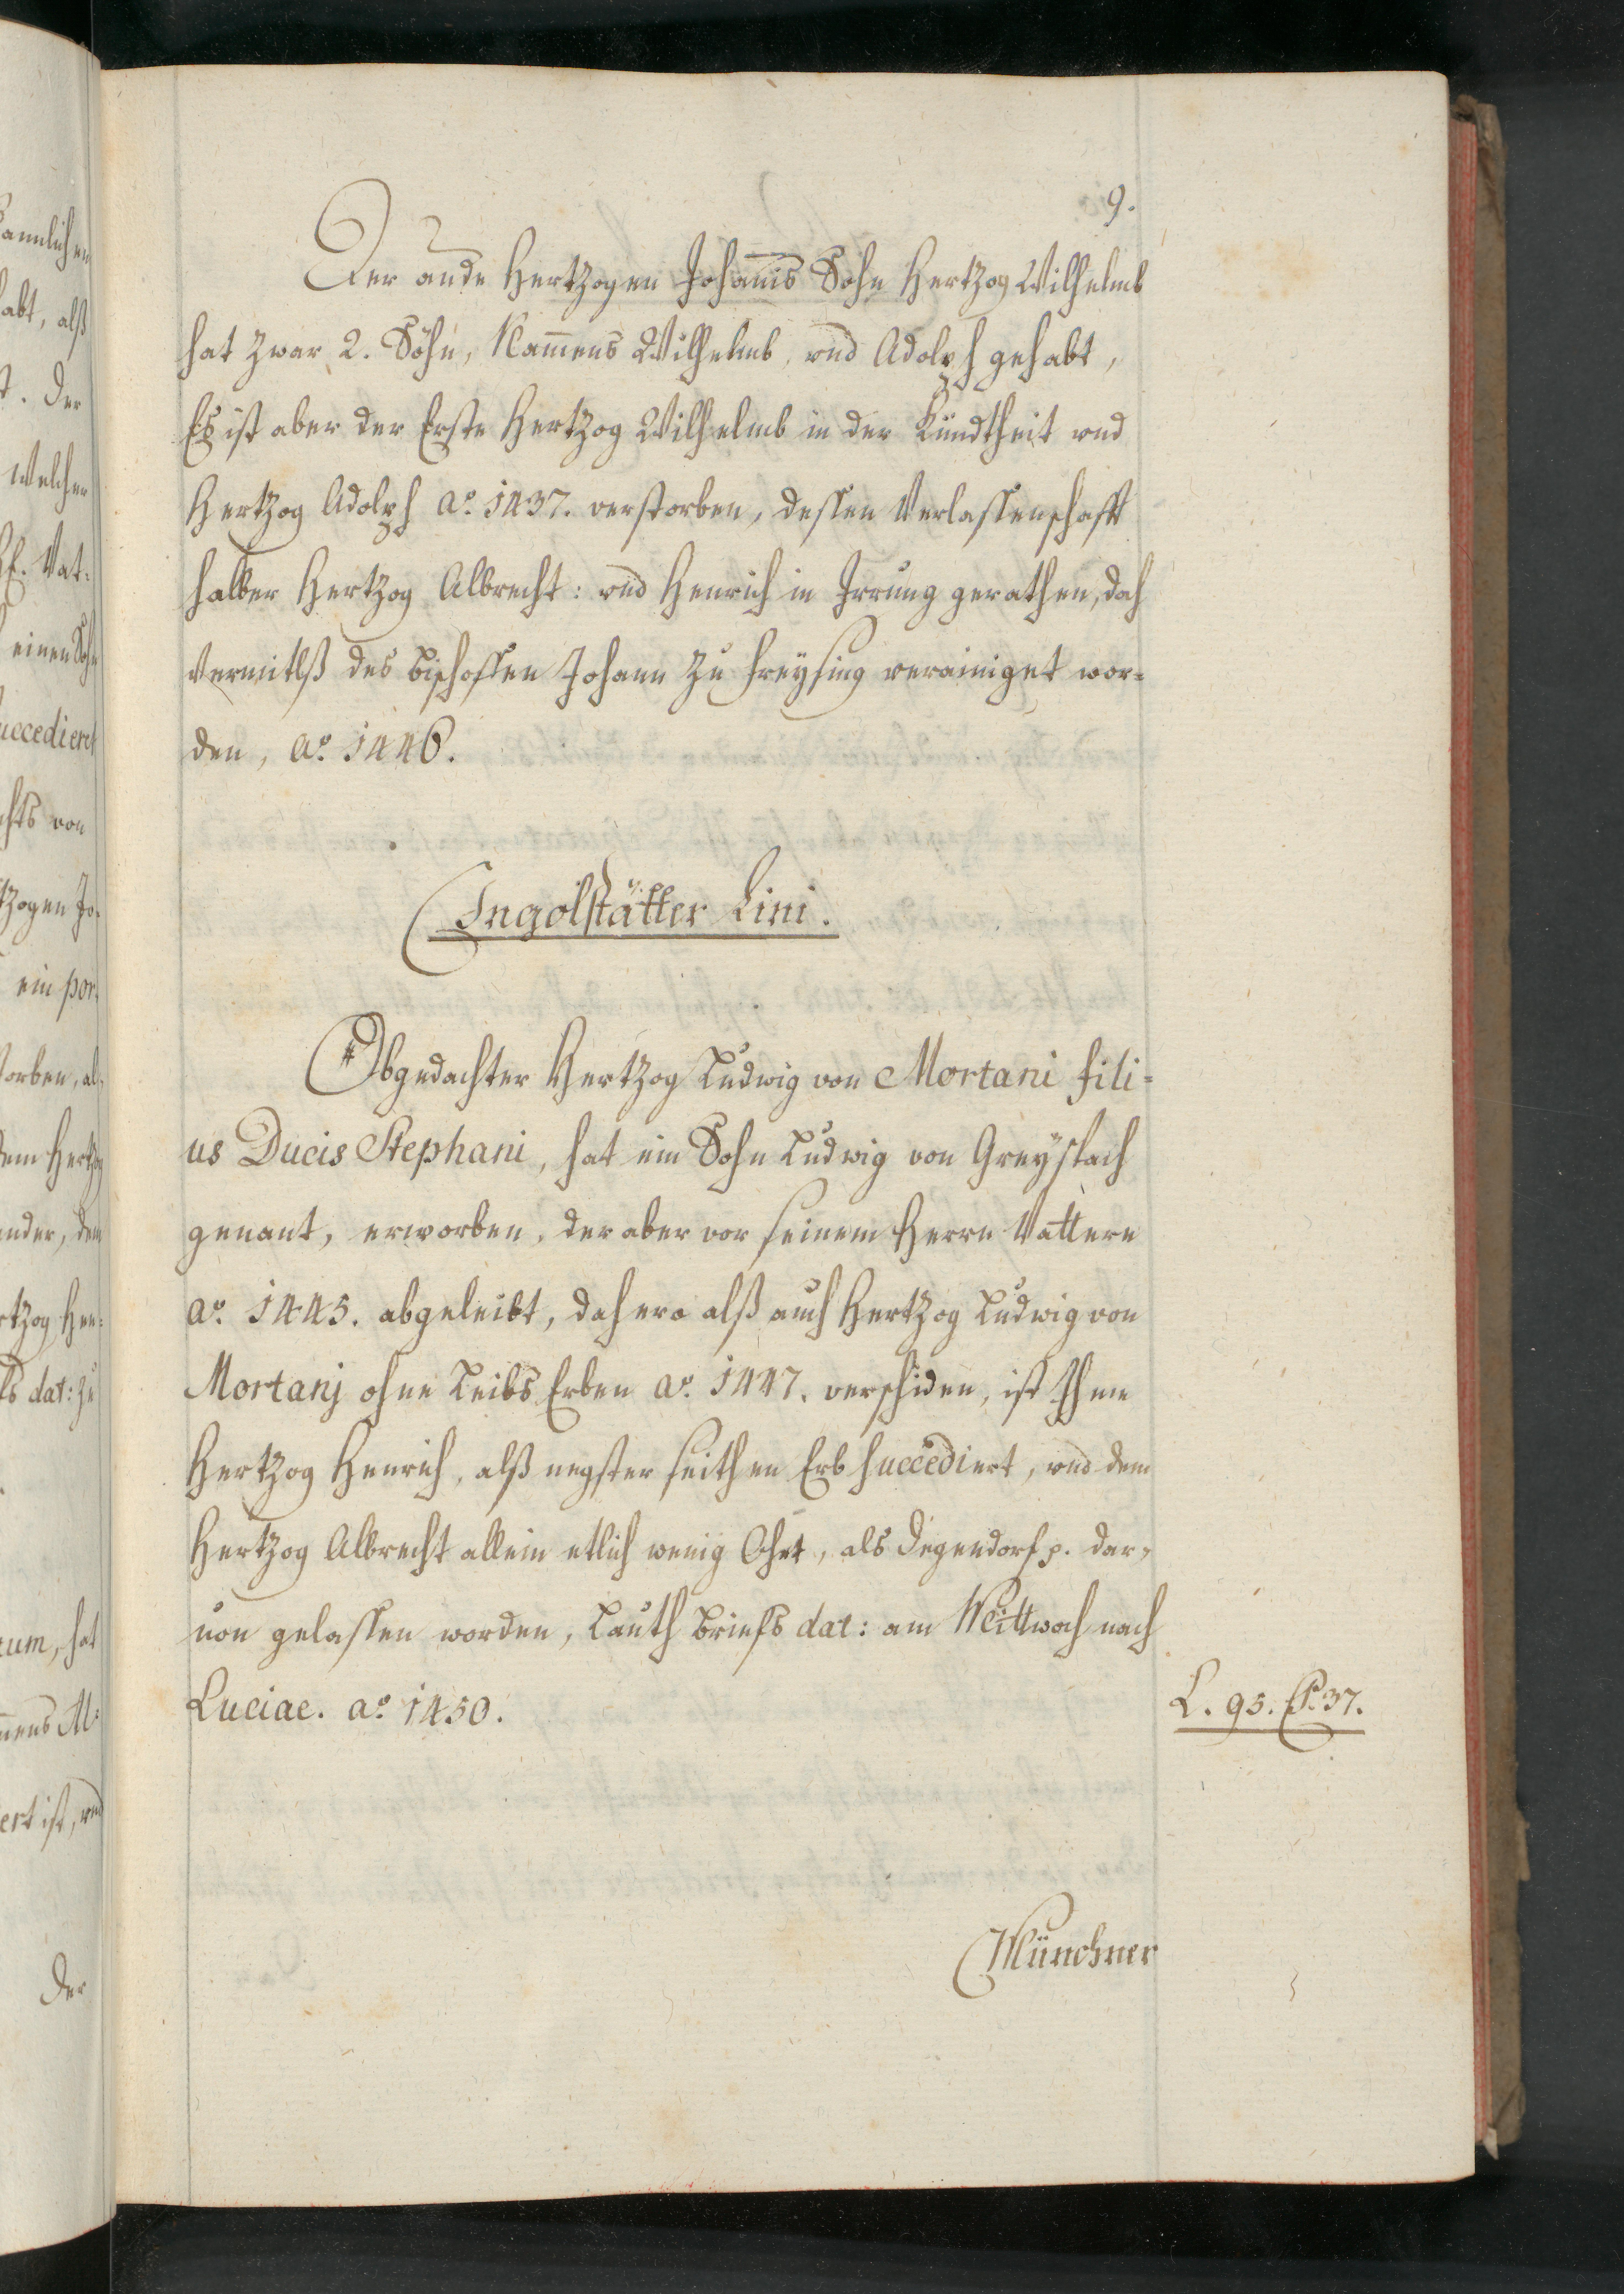 9.
Der ande Hertzogen Johannis Sohn Hertzog Wilhelmb
hat zwar 2. Söhn, Nammens Wilhelmb, und Adolph gehabt,
Es ist aber der Erste Hertzog Wilhelmb in der Kündtheit und
Hertzog Adolph aº. 1437. verstorben, dessen Verlassenschafft
halber Hertzog Albrecht: und Henrich in Irrung gerathen, doch
Vermitlß des bischoffen Johann zu Freysing verainiget wor-
den, aº. 1446.
Ingolstätter Lini.
Obgedachter Hertzog Ludwig von Mortani fili-
us Ducis Stephani, hat ein Sohn Ludwig von Greyspach
genant, erworben, der aber vor seinem Herrn Vattern
aº. 1445. abgeleibt, dahero alß auch Hertzog Ludwig von
Mortanj ohne Leibs Erben aº. 1447. verschiden, ist Ihme
Hertzog Henrich, alß negster seithen Erb succediert, und dem
Hertzog Albrecht allein etlich wenig Ohrt, als Degendorf p. dar-
von gelassen worden, Lauth briefs dat: am Mittwoch nach
Luciae. aº. 1450.
L. 95. P. 37.
Münchner